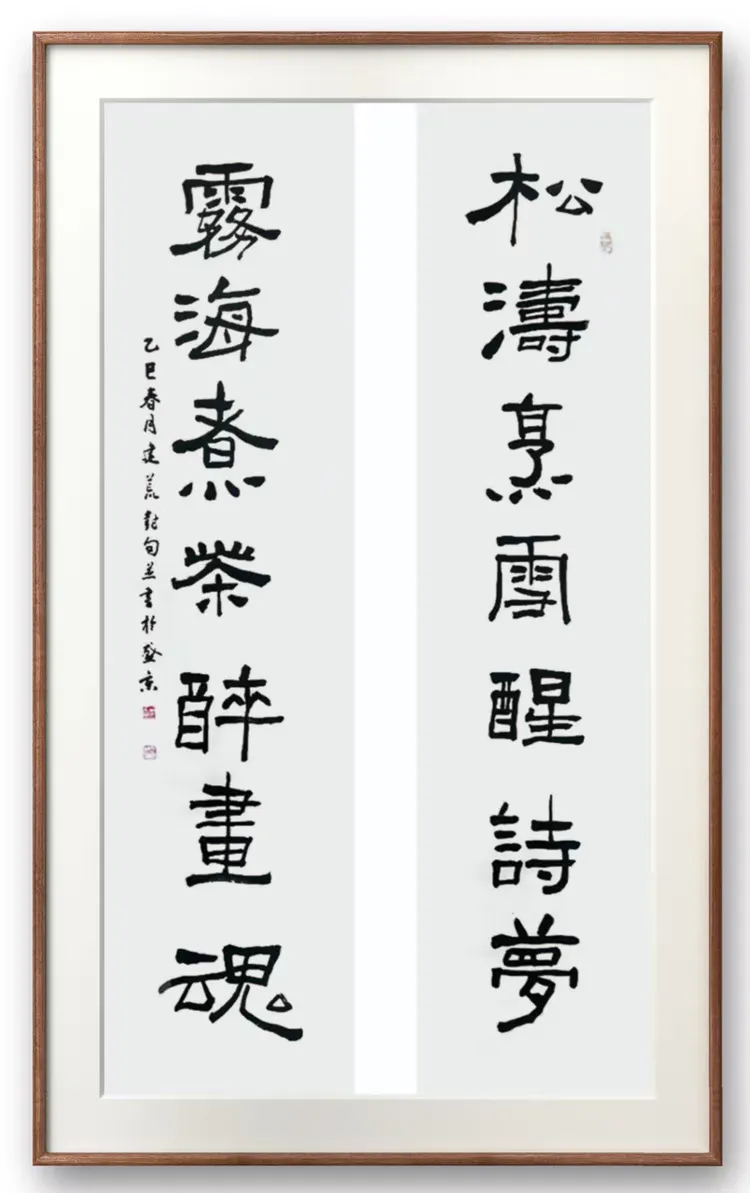 松濤烹雪醒詩夢
霧海煮茶醉畫魂
乙巳春月建荒對句並書於盛京